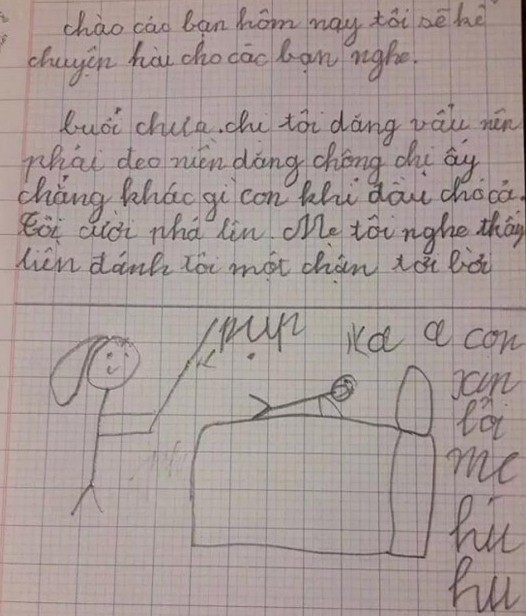 chào các bạn hôm nay tôi sẽ kể
chuyện hài cho các bạn nghe.
buổi chưa. chị tôi đang vẩu nên
phải đeo niền dăng chông chị ấy
chẳng khác gì con khỉ đầu chó cả.
tôi cười phá lên. Mẹ tôi nghe thấy
liền đánh tôi một chận tơi bời
pụp
a a con
xin
lỗi
mẹ
hu
hu